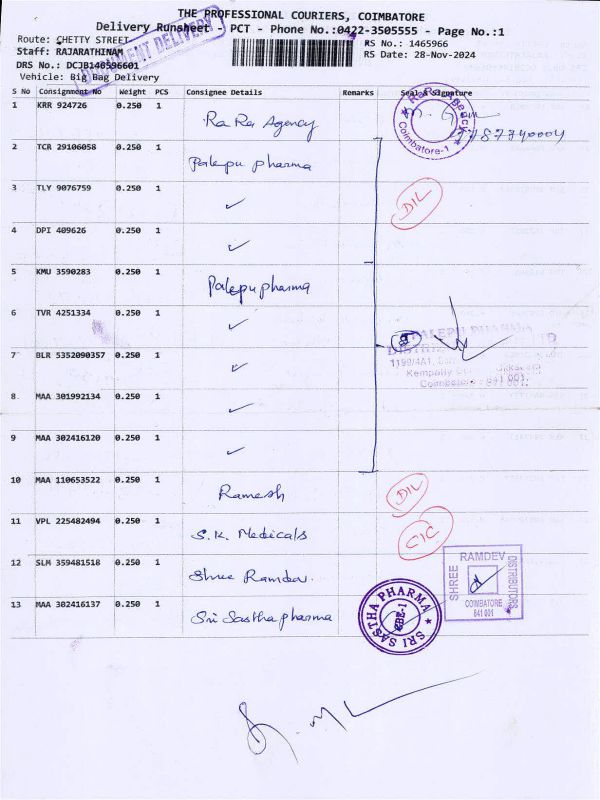 THE PROFESSIONAL COURIERS, COIMBATORE
Delivery Runsheet - PCT - Phone No.:0422-3505555 - Page No.:1
Route: CHETTY STREET
Staff: RAJARATHINAM
DRS No.: DCJB146596601
Vehicle: Big Bag Delivery
RS No.: 1465966
RS Date: 28-Nov-2024
DELIVERY
S No Consignment No Weight PCS Consignee Details Remarks Seal & Signature
1 KRR 924726 0.250 1 Ra Ra Agency
Coimbatore-1
2 TCR 29106058 0.250 1 Palepu pharma
3 TLY 9076759 0.250 1 ✓ D/L
4 DPI 409626 0.250 1 ✓
5 KMU 3590283 0.250 1 Palepu pharma
6 TVR 4251334 0.250 1 ✓
PALEPU PHARMA
7 BLR 5352090357 0.250 1 ✓
1199/4A1,
Kempatty
Coimbatore - 641 001.
8 MAA 301992134 0.250 1 ✓
9 MAA 302416120 0.250 1 ✓
10 MAA 110653522 0.250 1 Ramesh D/L
11 VPL 225482494 0.250 1 S.K. Medicals C/C
12 SLM 359481518 0.250 1 Shree Ramdev.
SHREE RAMDEV DISTRIBUTORS
COIMBATORE
641 001
13 MAA 302416137 0.250 1 Sri Sastha pharma
SRI SASTHA PHARMA
CBE-1